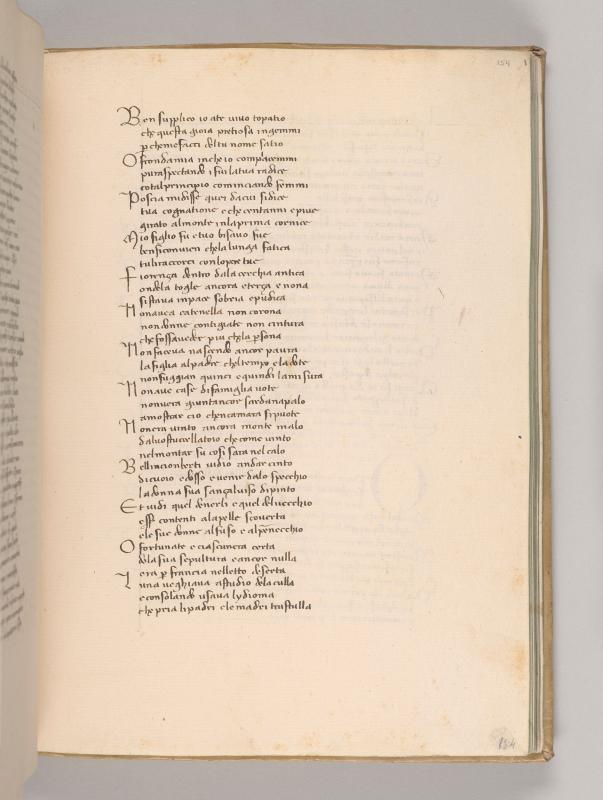 154
Ben supplico io ate vivo topatio
che questa gioia pretiosa ingemmi
p che mefacci deltu nome satio
O frondamia in che io compiacemmi
pur aspectando i fui latua radice
cotal principio cominciando femmi
Poscia mi disse quei da cui si dice
tua cognatione e che centanni e piue
girato almonte in la prima cornice
Mio figlio fu e tuo bisavo fue
ben si convien che la lunga fatica
tu li raccorci con lopere tue
Fiorenza dentro dala cerchia antica
ondela togle ancora e terza e nona
si stava in pace sobria e pudica
Non avea catenella non corona
non donne contigiate non cintura
che fosse aveder piu che la psona
Non faceva nascendo ancor paura
la figlia al padre chel tempo e la dote
non fuggian quinci e quindi la misura
Non ave case di famiglia vote
non vera giunt ancor sardanapalo
a mostrar cio chen camara si puote
Non era vinto ancora monte malo
dal vostro ucellatoio che come vinto
nel montar su cosi sara nel calo
Bellincion berti vidio andar cinto
di cuoio e dosso e venir dalo specchio
la donna sua sanza lviso dipinto
Et vidi quel de nerli e quel del vecchio
esser contenti ala pelle scoverta
e le sue donne al fuso e al pennecchio
O fortunate e ciascuna era certa
dela sua sepultura e ancor nulla
era p francia nel letto deserta
L una veghiava a studio dela culla
e consolando usava lydioma
che pria li padri e le madri trastulla
154